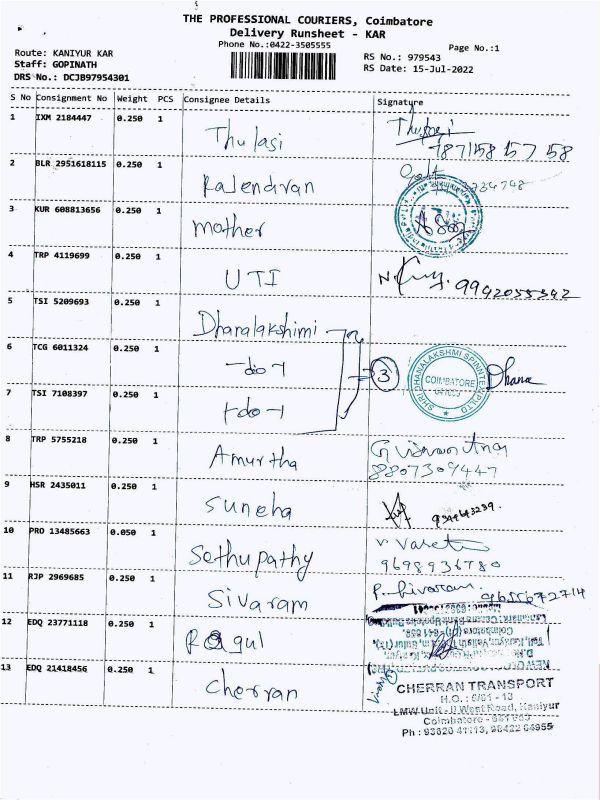 THE PROFESSIONAL COURIERS, Coimbatore
Delivery Runsheet - KAR
Phone No.:0422-3505555
Page No.:1
Route: KANIYUR KAR
Staff: GOPINATH
DRS No.: DCJB97954301
RS No.: 979543
RS Date: 15-Jul-2022
S No Consignment No Weight PCS Consignee Details Signature
1 IXM 2184447 0.250 1 Thulasi
2 BLR 2951618115 0.250 1 Rajendran
3 KUR 608813656 0.250 1 Mother
4 TRP 4119699 0.250 1 UTI 9942055342
5 TSI 5209693 0.250 1 Dhanalakshimi
6 TCG 6011324 0.250 1 -do-
3
SHRI DHANALAKSHMI SPINNTEX P LTD
COIMBATORE
Dhana
7 TSI 7108397 0.250 1 -do-
8 TRP 5755218 0.250 1 Amurtha
8807309447
9 HSR 2435011 0.250 1 Suneha
10 PRO 13485663 0.050 1 Sethupathy
9698936780
11 RJP 2969685 0.250 1 Sivaram P. Sivaram
9655672714
12 EDQ 23771118 0.250 1 Ragul
13 EDQ 21418456 0.250 1 Cherran
CHERRAN TRANSPORT
H.O. : 6/01 - 13
LMW Unit - II West Road, Kaniyur
Coimbatore - 641 659
Ph : 93620 41113, 98422 64955